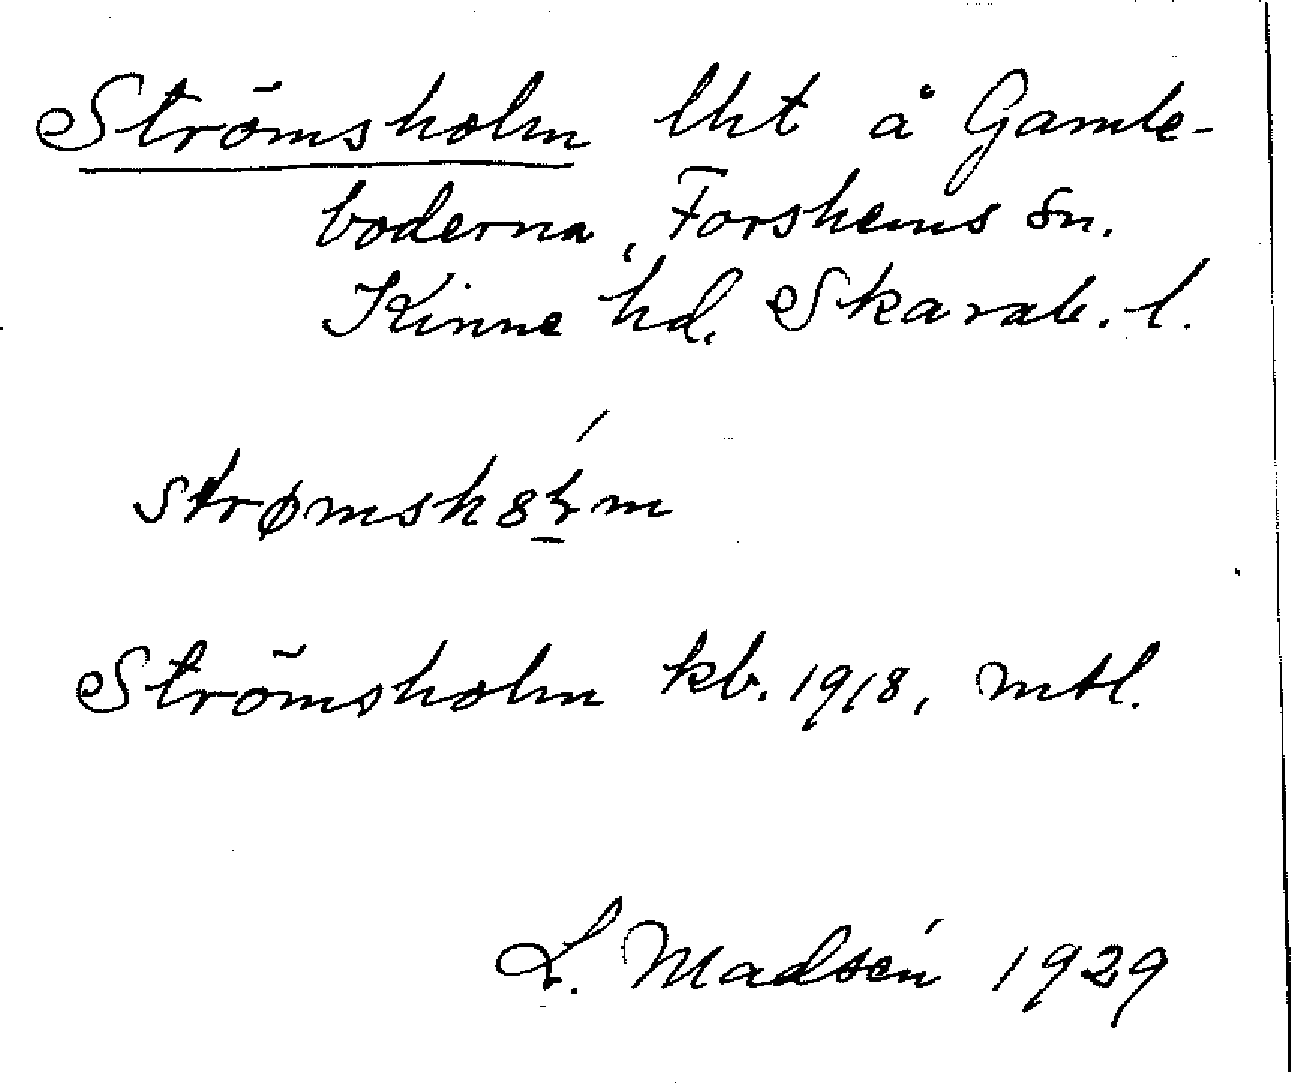 Strömsholm lht å Gamle-
boderna, Forshems sn.
Kinne hd. Skarab. l.
Strömsholm kb. 1918, mtl.
L. Madsén 1929